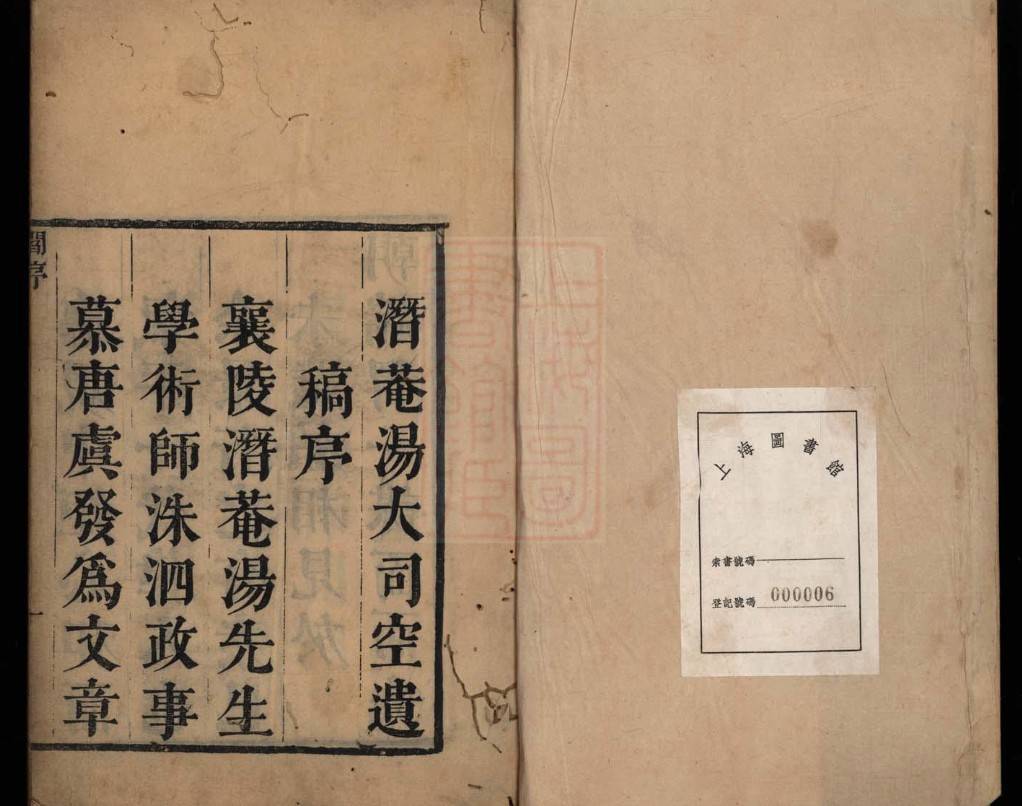 上海圖書館
索書號碼
登記號碼 000006
潛菴湯大司空遺
稿序
襄陵潛菴湯先生
學術師洙泗政事
慕唐虞發爲文章
閻序